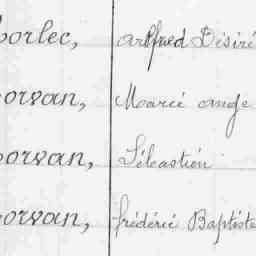 orlec, alfred Désiré
orvan, Marie ange
orvan, Sébastien
orvan, frédéric Baptiste